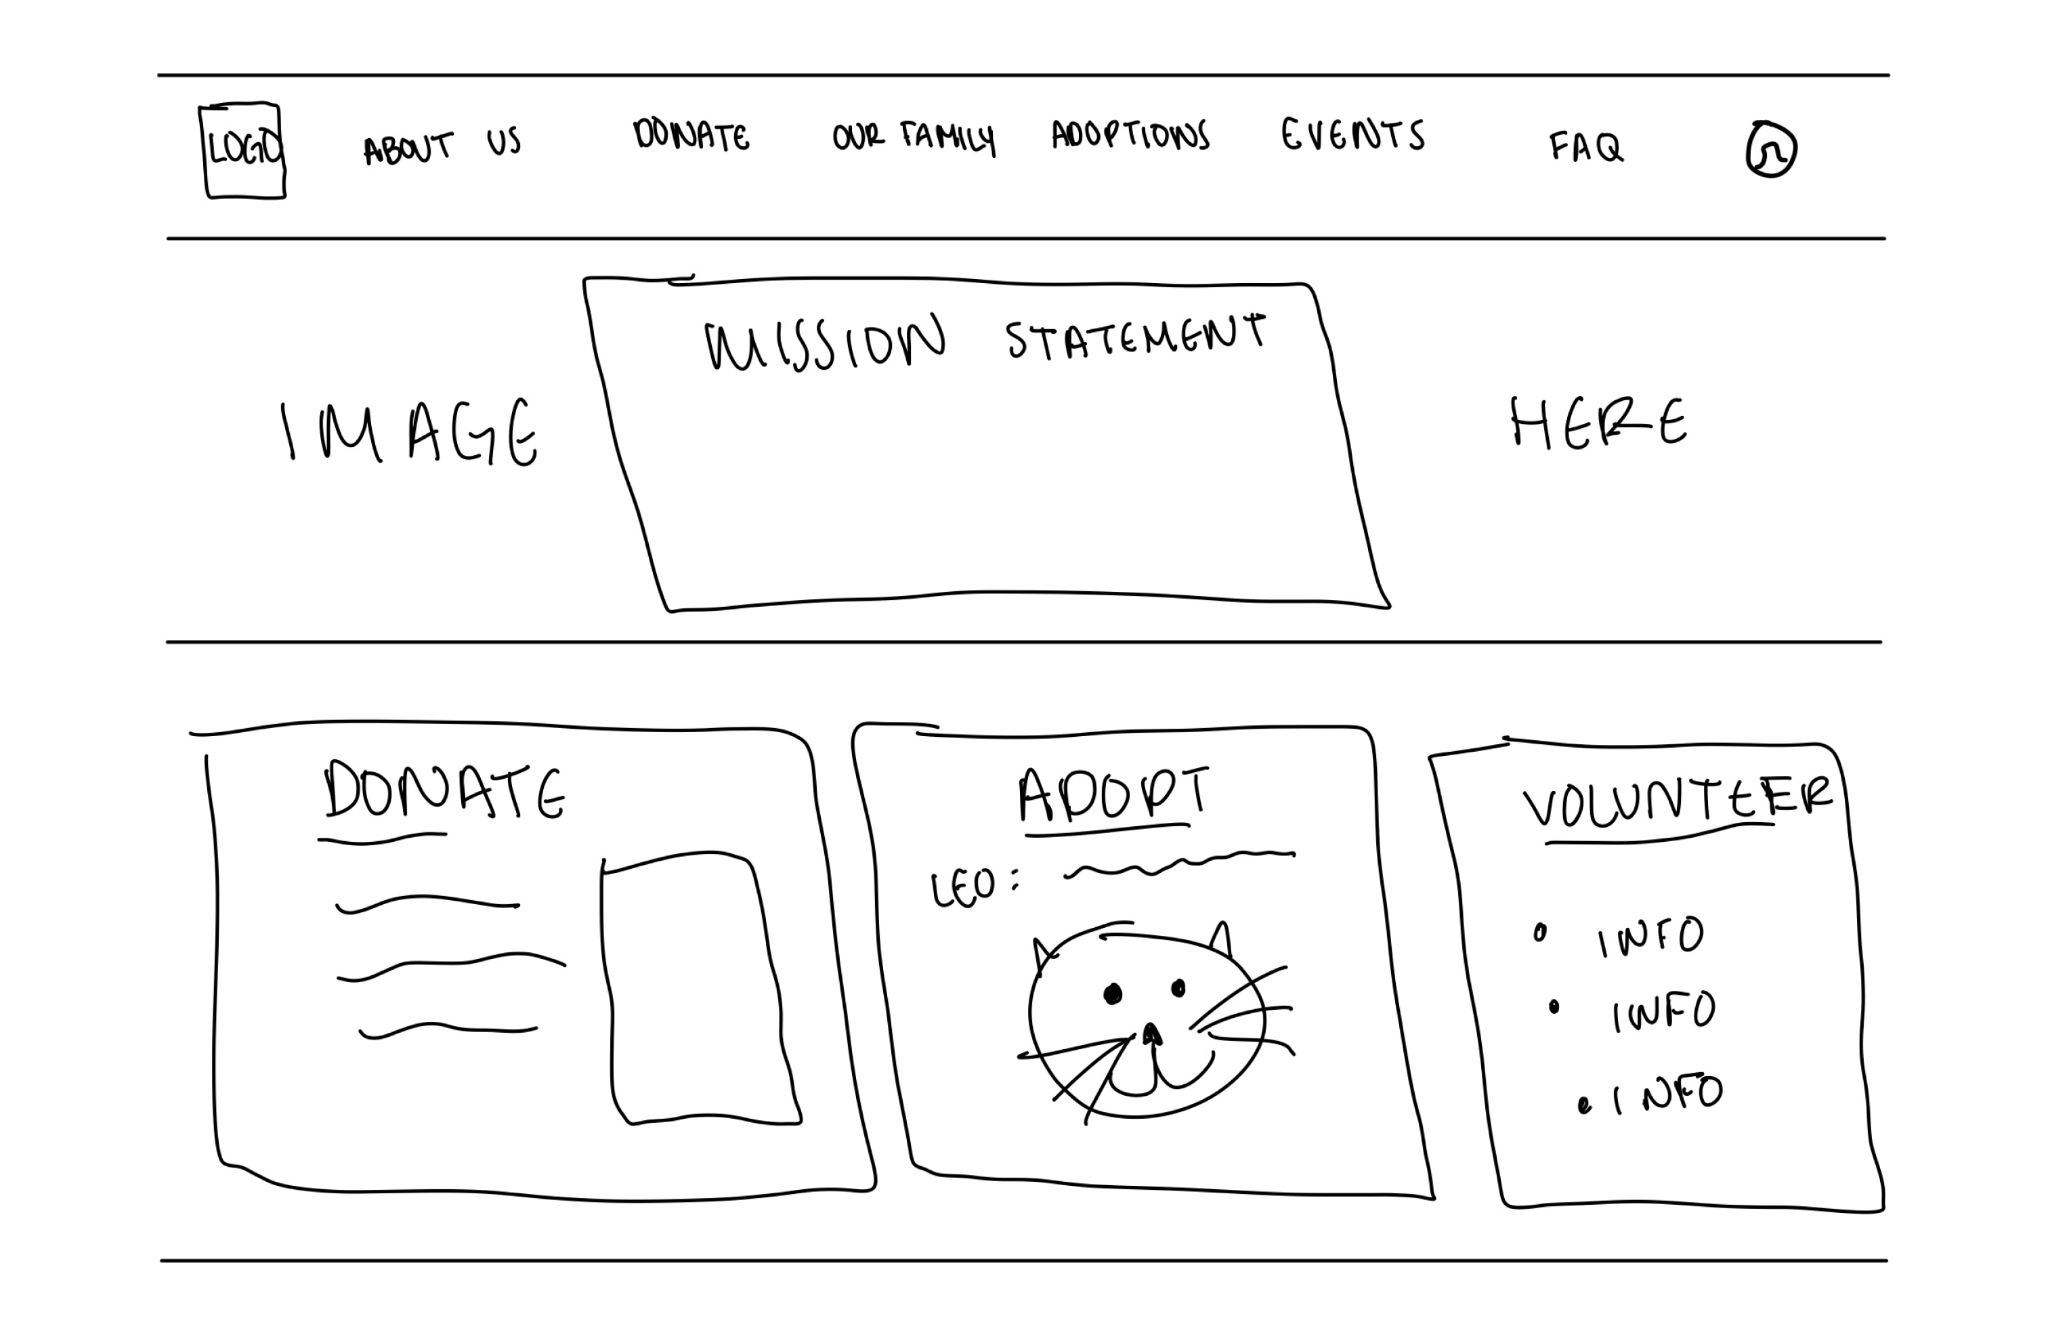 LOGO ABOUT US DONATE OUR FAMILY ADOPTIONS EVENTS FAQ
MISSION STATEMENT
IMAGE HERE
DONATE
ADOPT
LEO:
VOLUNTEER
• INFO
• INFO
• INFO